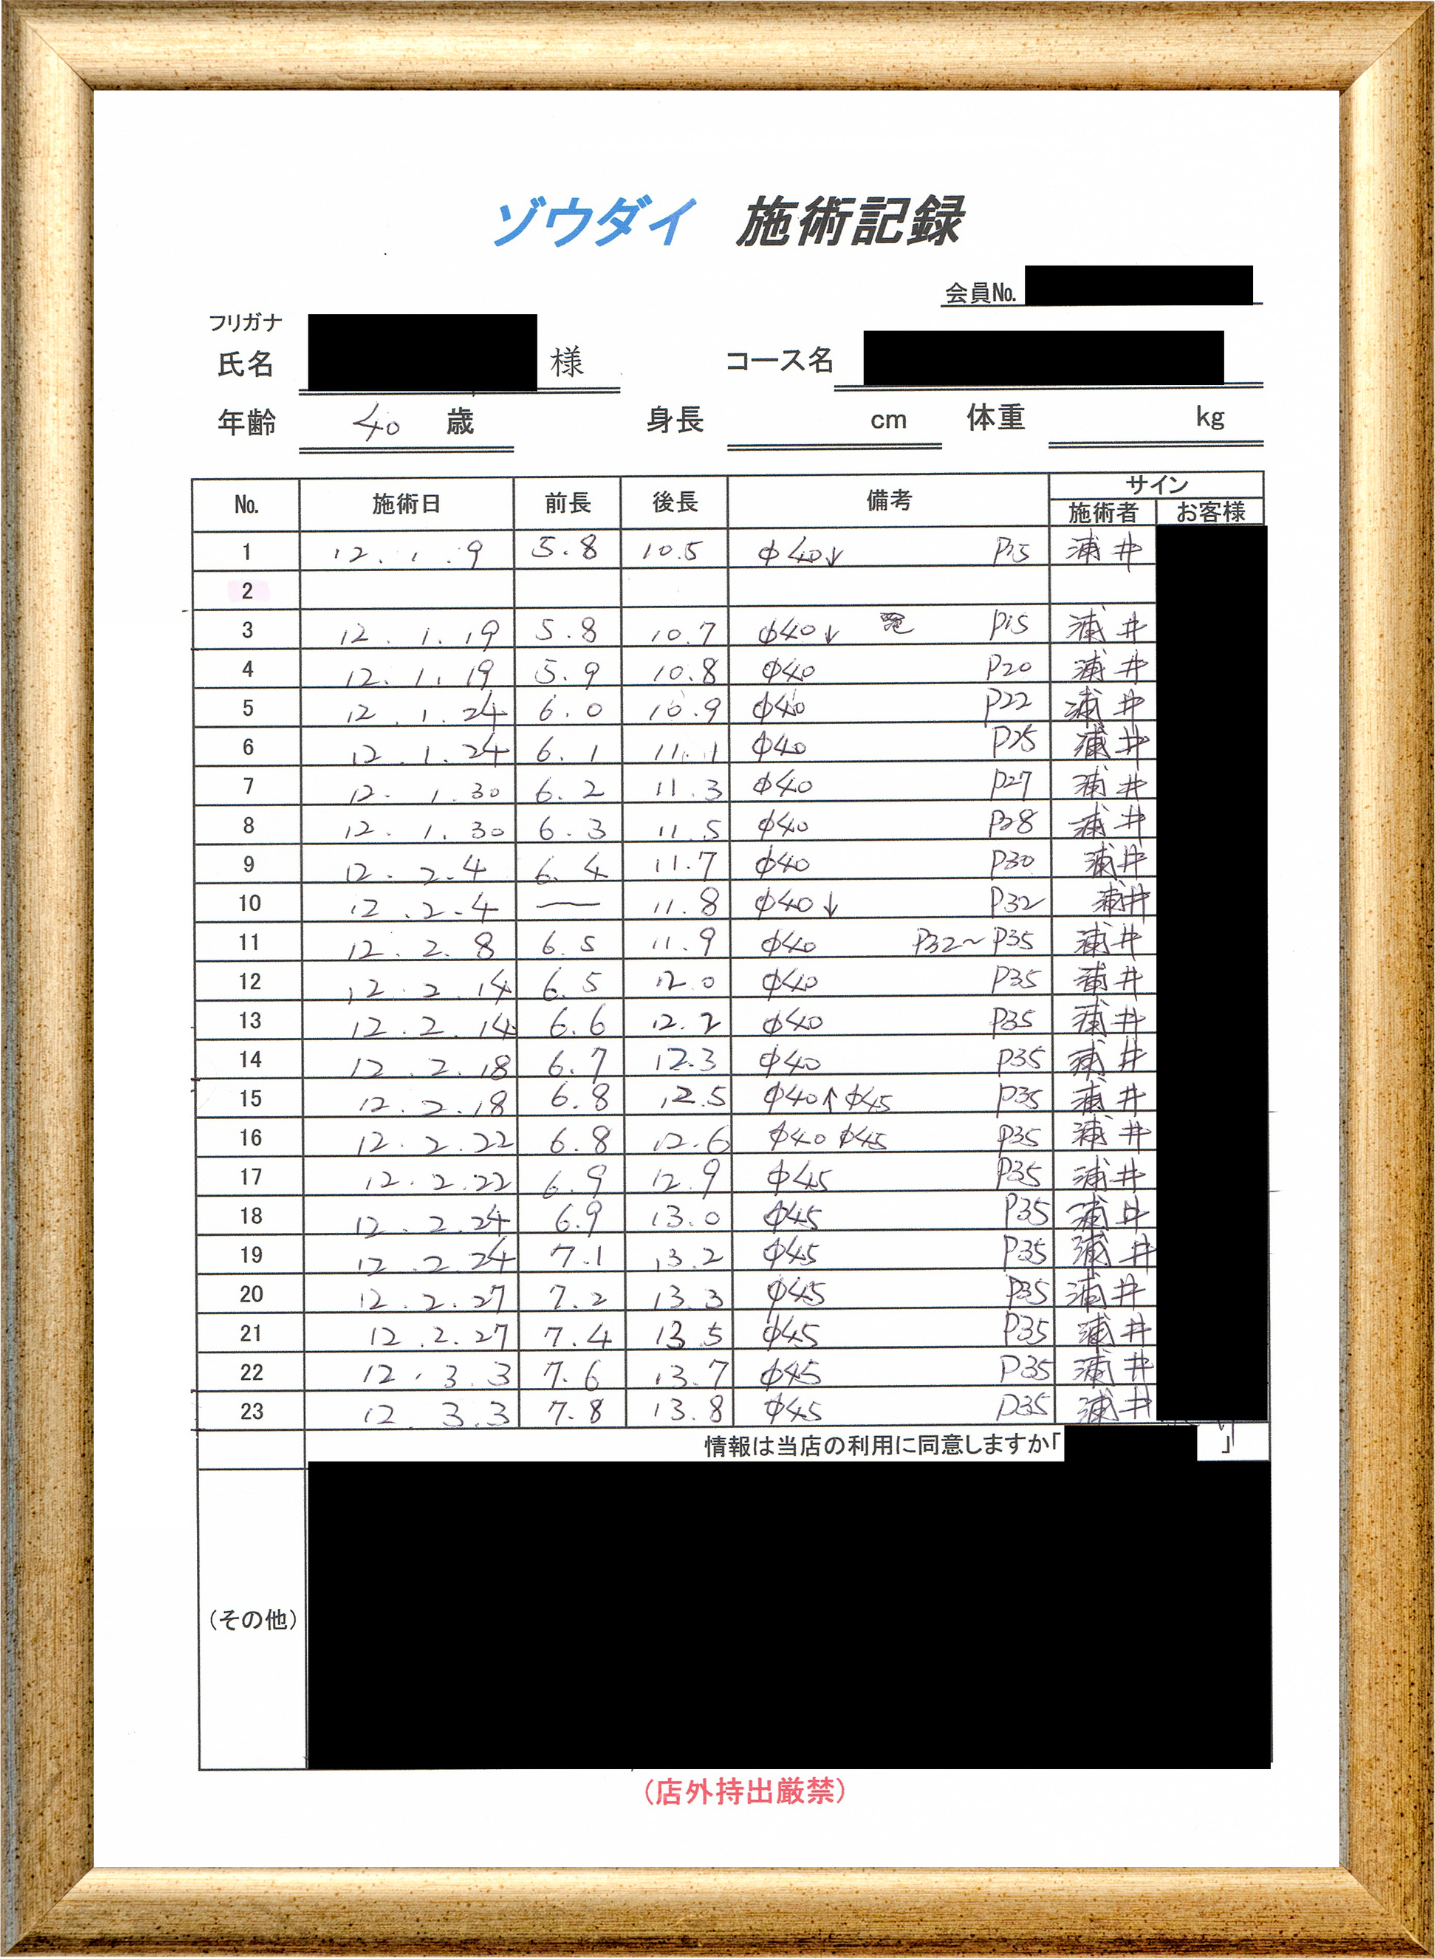 ゾウダイ 施術記録
会員No.
フリガナ
氏名 様 コース名
年齢 40 歳 身長 cm 体重 kg
No. 施術日 前長 後長 備考 サイン
施術者 お客様
1 12.1.9 5.8 10.5 φ40↓ P15 浦井
2
3 12.1.19 5.8 10.7 φ40↓ P15 浦井
4 12.1.19 5.9 10.8 φ40 P20 浦井
5 12.1.24 6.0 10.9 φ40 P22 浦井
6 12.1.24 6.1 11.1 φ40 P25 浦井
7 12.1.30 6.2 11.3 φ40 P27 浦井
8 12.1.30 6.3 11.5 φ40 P28 浦井
9 12.2.4 6.4 11.7 φ40 P30 浦井
10 12.2.4 — 11.8 φ40↓ P32 浦井
11 12.2.8 6.5 11.9 φ40 P32~P35 浦井
12 12.2.14 6.5 12.0 φ40 P35 浦井
13 12.2.14 6.6 12.2 φ40 P35 浦井
14 12.2.18 6.7 12.3 φ40 P35 浦井
15 12.2.18 6.8 12.5 φ40↑φ45 P35 浦井
16 12.2.22 6.8 12.6 φ40 φ45 P35 浦井
17 12.2.22 6.9 12.9 φ45 P35 浦井
18 12.2.24 6.9 13.0 φ45 P35 浦井
19 12.2.24 7.1 13.2 φ45 P35 浦井
20 12.2.27 7.2 13.3 φ45 P35 浦井
21 12.2.27 7.4 13.5 φ45 P35 浦井
22 12.3.3 7.6 13.7 φ45 P35 浦井
23 12.3.3 7.8 13.8 φ45 P35 浦井
情報は当店の利用に同意しますか「 」
(その他)
(店外持出厳禁)